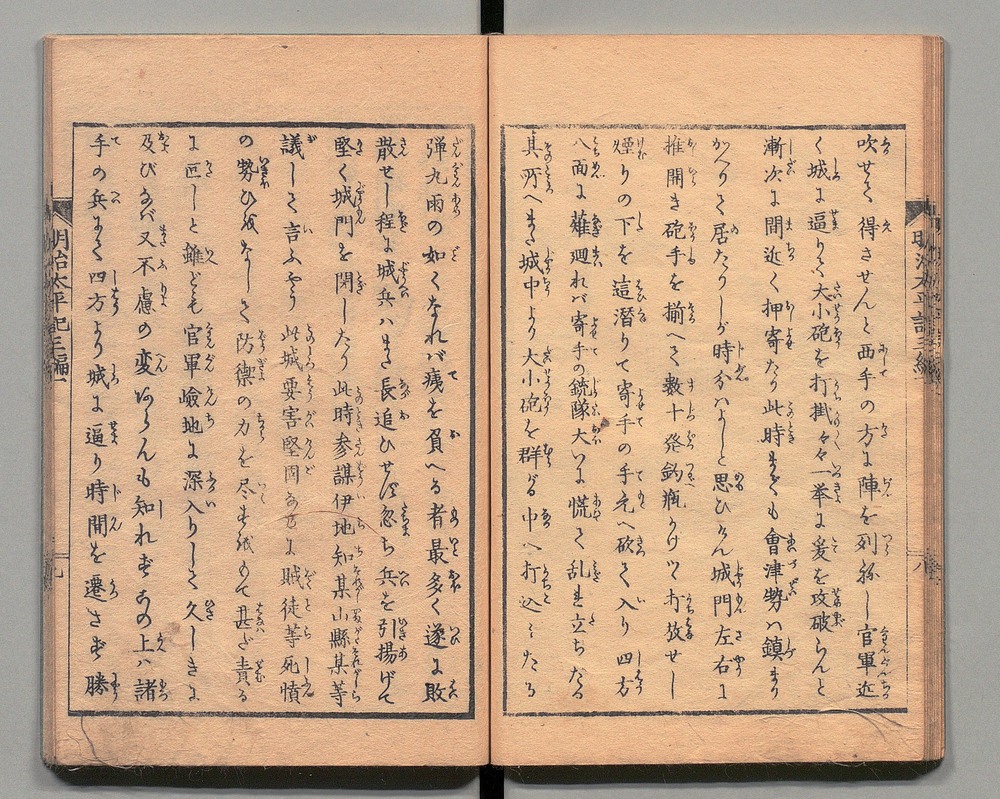 吹せて得させんと西手の方に陣を列ねし官軍近
く城に逼りて大小砲を打掛々々一挙に爰を攻破らんと
漸次に間近く押寄たり此時までも會津勢ハ鎮まり
かへりて居たりしが時分ハよしと思ひけん城門左右に
推開き砲手を揃へて数十発釣瓶かけツヽ打放せし
煙りの下を這潜りて寄手の手元へ欲て入り四方
八面に薙廻れバ寄手の銃隊大いに慌て乱れ立ちたる
其所へまた城中より大小砲を群がる中へ打込こたる
弾丸雨の如くなれバ痍を負へる者最多く遂に敗
散せし程に城兵ハまた長追ひせず忽ち兵を引揚げて
堅く城門を閉したり此時参謀伊地知某山縣某等
議して言ふやう此城要害堅固なるに賊徒等死憤
の勢ひをなして防禦の力を尽すを以もて甚だ責る
に叵しと雖ども官軍嶮地に深入りして久しきに
及びなバ又不慮の変あらんも知れずこの上ハ諸
手の兵にて四方より城に逼り時間を遷さず勝
明治太平記三編一
八
明治太平記三編一
九